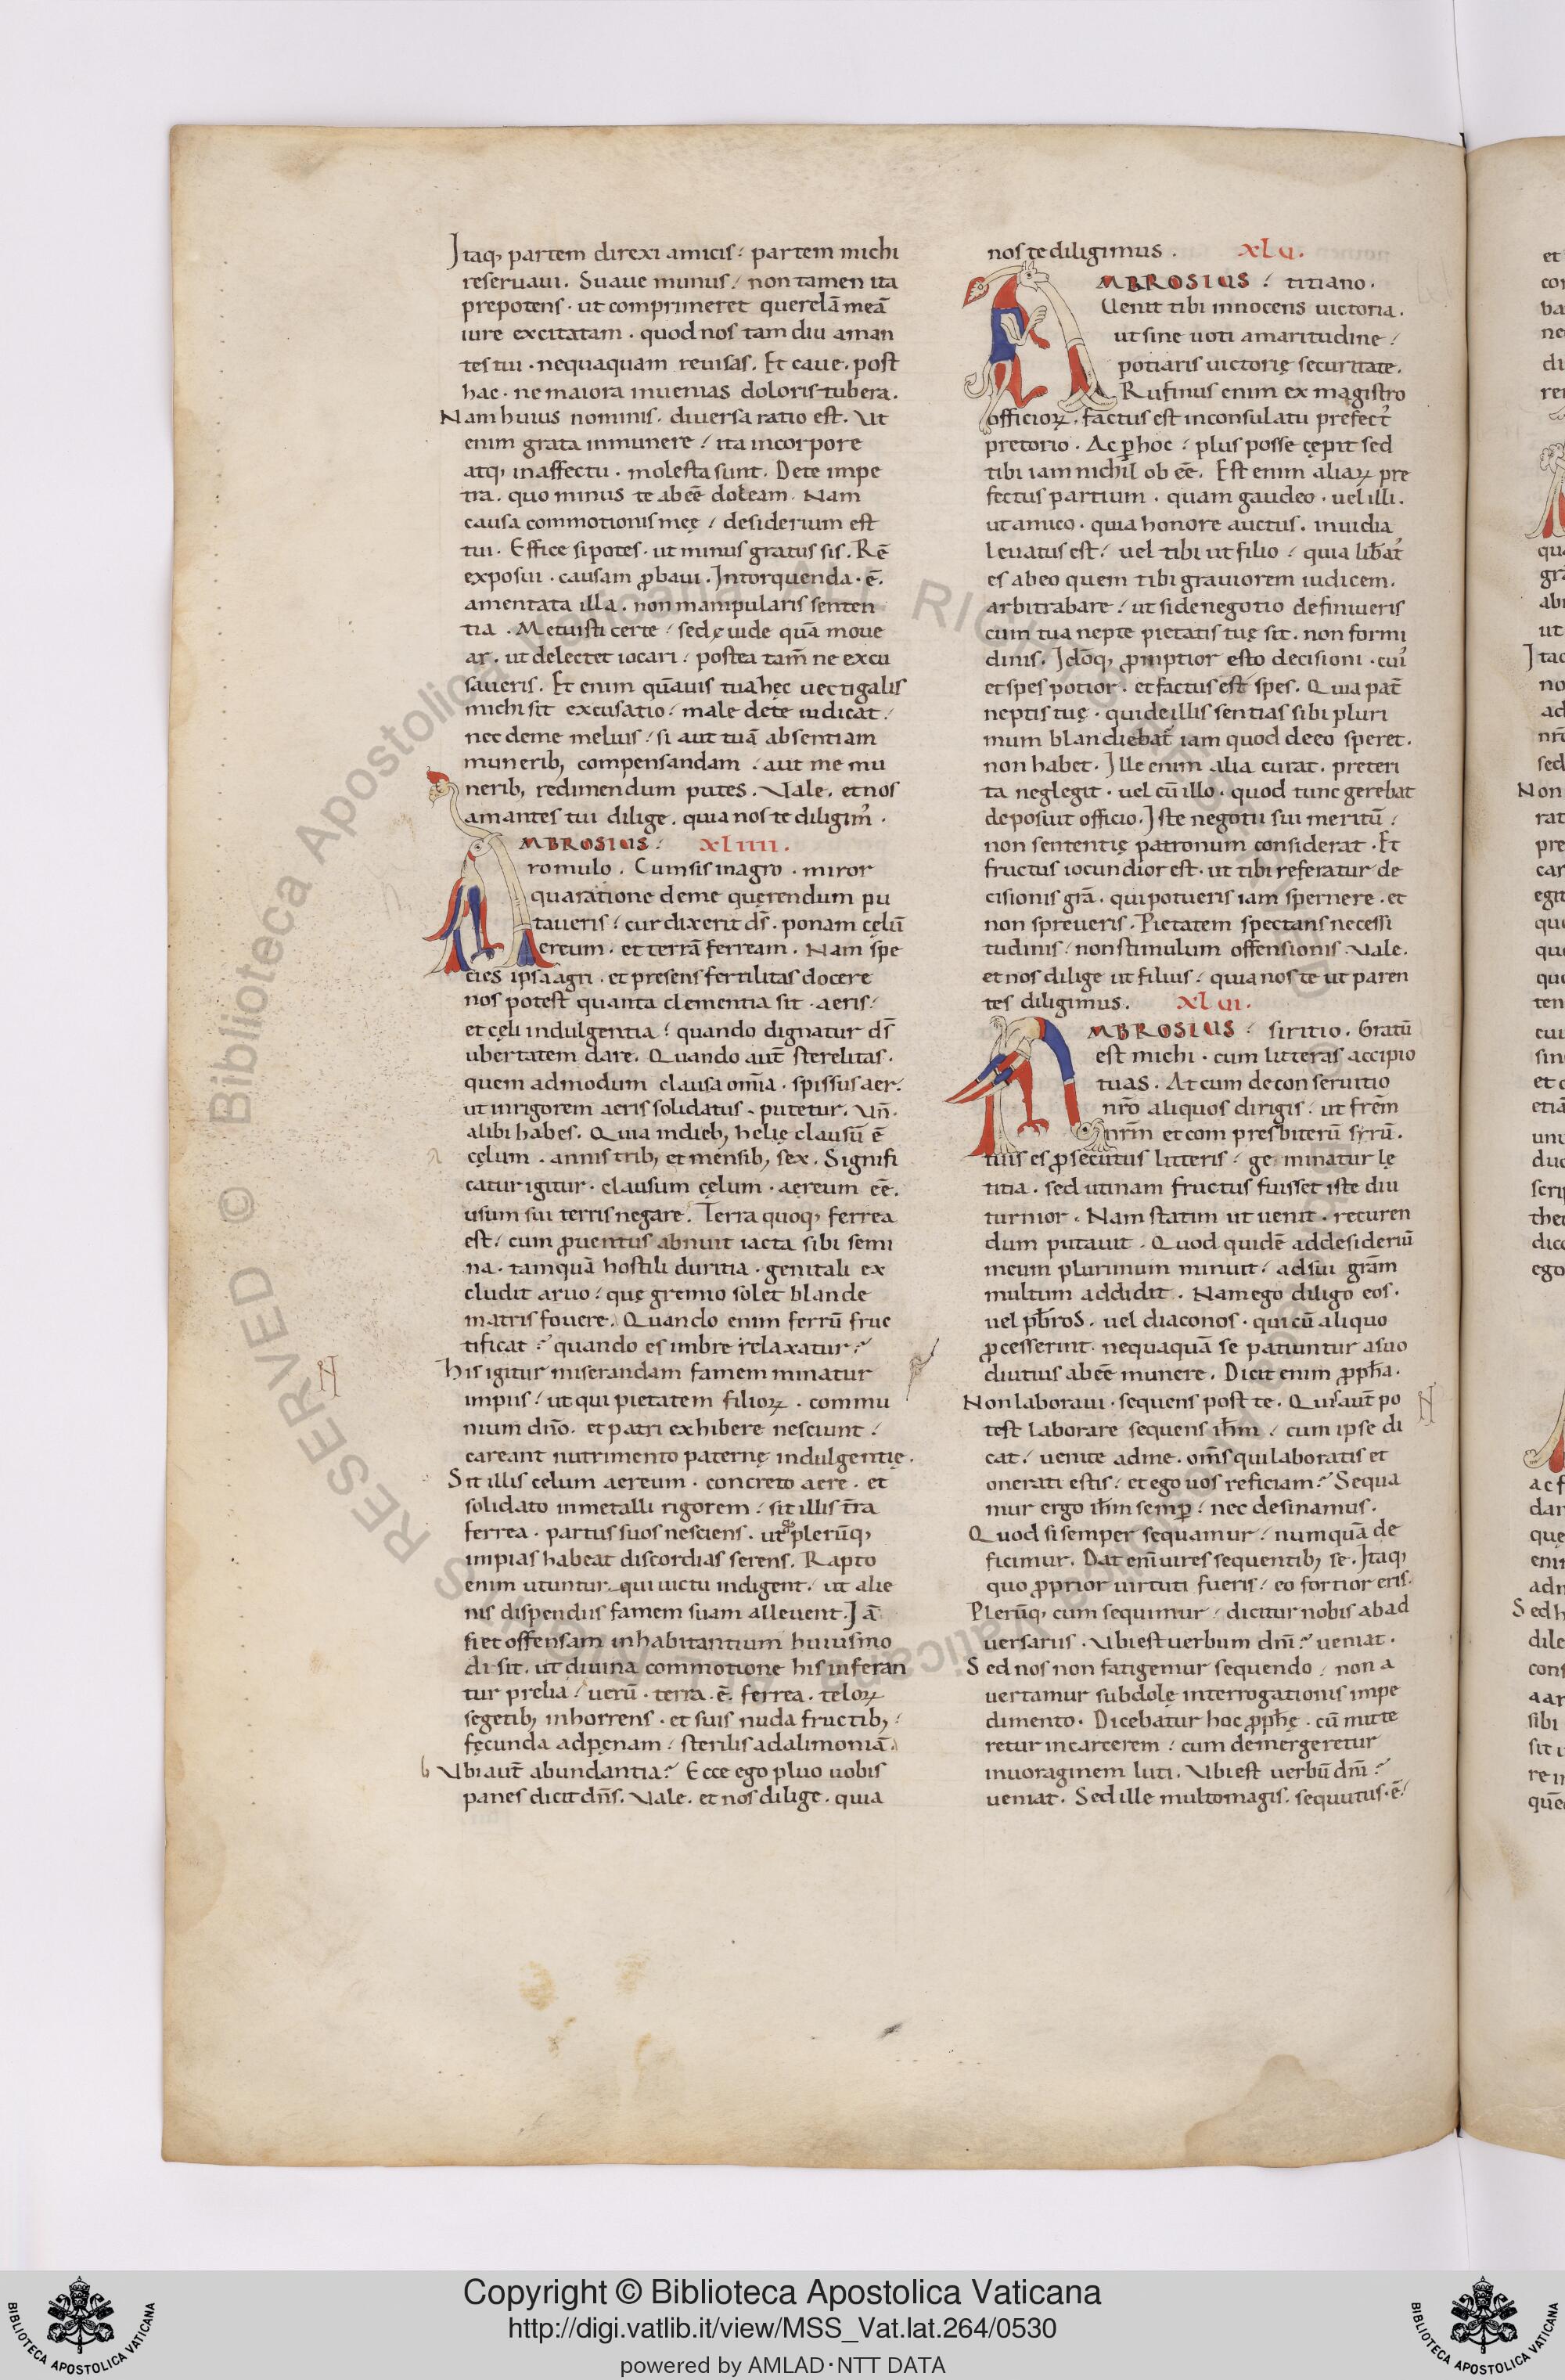 Itaq, partem direxi amicis: partem michi
reseruaui. Suaue munus: non tamen ita
prepotens. ut comprimeret querelā meā
iure excitatam. quod nos tam diu aman
tes tui. nequaquam reuisas. Et caue. post
hac. ne maiora inuenias doloris tubera.
Nam huius nominis. diuersa ratio est. Ut
enim grata in munere: ita in corpore
atq, in affectu. molesta sunt. De te impe
tra. quo minus te abeē doleam. Nam
causa commotionis meę: desiderium est
tui. Effice si potes. ut minus gratus sis. Rē
exposui. causam ꝓbaui. Intorquenda. ē.
amentata illa. non manipularis senten
tia. Metuisti certe: sed ęuide quā moue
ar. ut delectet iocari: postea tam̄ ne excu
saueris. Et enim quāuis tua hęc uectigalis
michi sit excusatio: male de te iudicat:
nec de me melius: si aut tuā absentiam
munerib, compensandam: aut me mu
nerib, redimendum putes. Vale. et nos
amantes tui dilige. quia nos te diligim᾽.
AMBROSIUS: XLIIII.
romulo. Cum sis in agro. miror
qua ratione de me quęrendum pu
taueris: cur dixerit dš. ponam cęlū
ereum. et terrā ferream. Nam spe
cies ipsa agri. et presens fertilitas docere
nos potest quanta clementia sit. aeris:
et cęli indulgentia: quando dignatur dš
ubertatem dare. Quando aut̄ sterelitas.
quem admodum clausa om̄ia. spissus aer:
ut in rigorem aeris solidatus. putetur. Un̄.
alibi habes. Quia in dieb, helię clausū ē
cęlum. annis trib, et mensib, sex. Signifi
catur igitur. clausum cęlum. aęreum eē.
usum sui terris negare. Terra quoq, ferrea
est: cum ꝓuentus abnuit iacta sibi semi
na. tamquā hostili duritia. genitali ex
cludit aruo: quę gremio solet blande
matris fouere. Quando enim ferrū fruc
tificat? quando es imbre relaxatur?
His igitur miserandam famem minatur
impiis: ut qui pietatem filioꝝ. commu
nium dn̄o. et patri exhibere nesciunt:
careant nutrimento paternę indulgentię.
Sit illis celum aereum. concreto aere. et
solidato in metalli rigorem: sit illis t̄ra
ferrea. partus suos nesciens. ut plerūq,
impias habeat discordias serens. Rapto
enim utuntur. qui uictu indigent. ut alie
nis dispendiis famem suam alleuent. Iā
si et offensam inhabitantium huiusmo
di sit. ut diuina commotione his inferan
tur prelia: uerū. terra. ē. ferrea. teloꝝ
segetib, inhorrens. et suis nuda fructib,:
fęcunda ad pęnam: sterilis ad alimoniā.
b Ubi aut̄ abundantia? Ecce ego pluo uobis
panes dicit dn̄s. Vale. et nos dilige. quia
nos te diligimus. XLU.
AMBROSIUS: titiano.
Uenit tibi innocens uictoria.
ut sine uoti amaritudine:
potiaris uictorię securitate.
Rufinus enim ex magistro
officioꝝ. factus est in consulatu prefect᾽
pretorio. Ac ꝑ hoc: plus posse cępit sed
tibi iam nichil ob eē. Est enim aliaꝝ pre
fectus partium. quam gaudeo. uel illi.
ut amico. quia honore auctus. inuidia
leuatus est: uel tibi ut filio: quia lib̄at᾽
es ab eo quem tibi grauiorem iudicem.
arbitrabare: ut si de negotio definiueris
cum tua nepte pietatis tuę sit. non formi
dinis. Idōq, ꝓmptior esto decisioni. cui᾽
et spes potior. et factus est spes. Quia pat̄
neptis tuę. qui de illis sentias sibi pluri
mum blandiebat᾽ iam quod de eo speret.
non habet. Ille enim alia curat. preteri
ta neglegit. uel cū illo. quod tunc gerebat
deposuit officio. Iste negotii sui meritū:
non sententię patronum considerat. Et
fructus iocundior est. ut tibi referatur de
cisionis grā. qui potueris iam spernere. et
non spreueris. Pietatem spectans necessi
tudinis: non stimulum offensionis. Vale.
et nos dilige ut filius: quia nos te ut paren
tes diligimus. XLUI.
AMBROSIUS: siritio. Gratū
est michi. cum litteras accipio
tuas. At cum de con seruitio
nr̄o aliquos dirigis: ut frēm
nrm̄ et com presbiterū syrū.
tuis es ꝓsecutus litteris: ge minatur lę
titia. sed utinam fructus fuisset iste diu
turnior. Nam statim ut uenit. recuren
dum putauit. Quod quidē ad desideriū
meum plurimum minuit: ad sui grām
multum addidit. Nam ego diligo eos.
uel pb̄ros. uel diaconos. qui cū aliquo
ꝓcesserint. nequaquā se patiuntur a suo
diutius abeē munere. Dicit enim ꝓph̄a.
Non laboraui. sequens post te. Quis aut̄ po
test laborare sequens ih̄m: cum ipse di
cat: uenite ad me. om̄s qui laboratis et
onerati estis: et ego uos reficiam? Sequa
mur ergo ih̄m semꝑ: nec desinamus.
Quod si semper sequamur: numquā de
ficimur. Dat enī uires sequentib, se. Itaq,
quo ꝓprior uirtuti fueris: eo fortior eris.
Plerūq, cum sequimur: dicitur nobis ab ad
uersariis. Ubi est uerbum dnī? ueniat.
Sed nos non fatigemur sequendo: non a
uertamur subdolę interrogationis impe
dimento. Dicebatur hoc ꝓph̄ę. cū mitte
retur in carcerem: cum demergeretur
in uoraginem luti. Ubi est uerbū dnī?
ueniat. Sed ille multo magis. sequutus. ē:
Copyright © Biblioteca Apostolica Vaticana
http://digi.vatlib.it/view/MSS_Vat.lat.264/0530
powered by AMLAD·NTT DATA
BIBLIOTECA APOSTOLICA VATICANA
BIBLIOTECA APOSTOLICA VATICANA
© Biblioteca Apostolica Vaticana ALL RIGHTS RESERVED